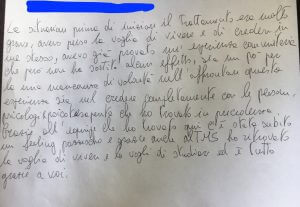 La situazione prima di iniziare il Trattamento era molto
grave, avevo perso la voglia di vivere e di credere in
me stesso, avevo già provato un' esperienza
che però non ha sortito alcun effetto, sia un po' per
la mia mancanza di volontà nell' affrontare questa
esperienza sia nel credere completamente con le persone,
psicologi e psicoterapeuti che ho trovato in precedenza.
Grazie all' equipe che ho trovato qui c'è stato subito
un feeling pazzesco e grazie anche al TMS ho ritrovato
la voglia di vivere e la voglia di studiare ed è tutto
grazie a voi.